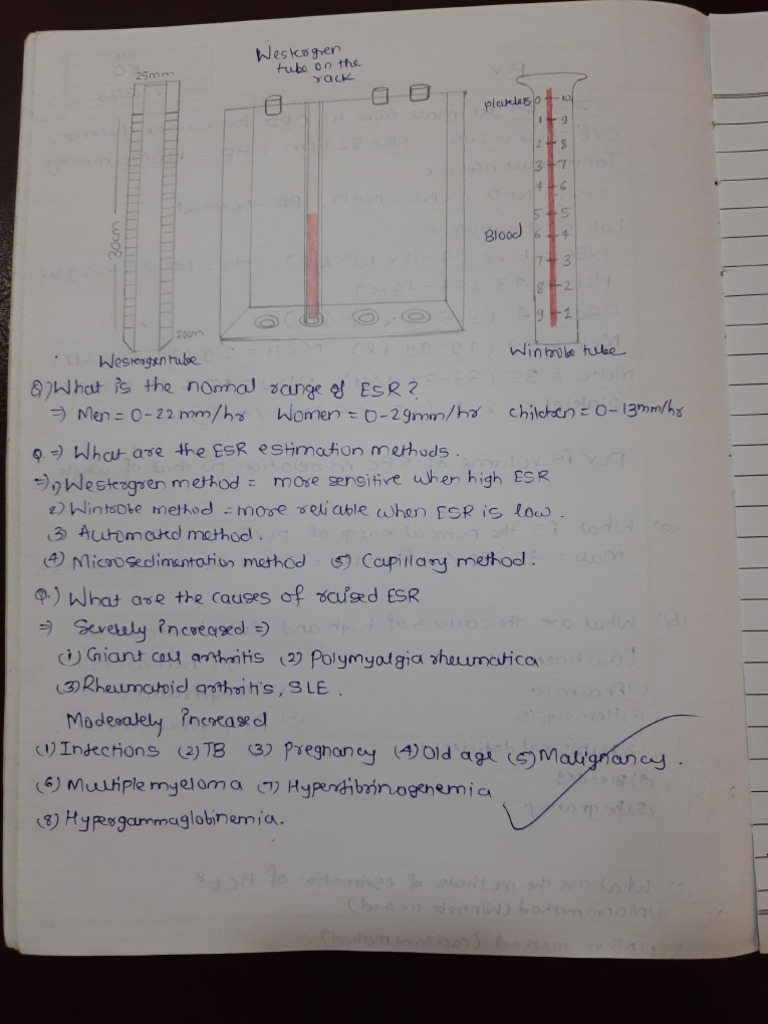 Westergren
tube on the
rack
25mm
30cm
20cm
Westergen tube
platelets
0 10
1 9
2 8
3 7
4 6
5 5
Blood 6 4
7 3
8 2
9 1
Wintrobe tube
Q) What is the normal range of ESR?
⇒ Men = 0-22 mm/hr Women = 0-29mm/hr children = 0-13mm/hr
Q ⇒ What are the ESR estimation methods.
⇒ 1) Westergren method = more sensitive when high ESR
2) Wintrobe method = more reliable when ESR is low.
(3) Automated method.
(4) Microsedimentation method (5) Capillary method.
Q.) What are the causes of raised ESR
⇒ Severely increased ⇒
(1) Giant cell arthritis (2) Polymyalgia rheumatica
(3) Rheumatoid arthritis, SLE.
Moderately increased
(1) Infections (2) TB (3) Pregnancy (4) Old age (5) Malignancy.
(6) Multiple myeloma (7) Hyperfibrinogenemia
(8) Hypergammaglobinemia.